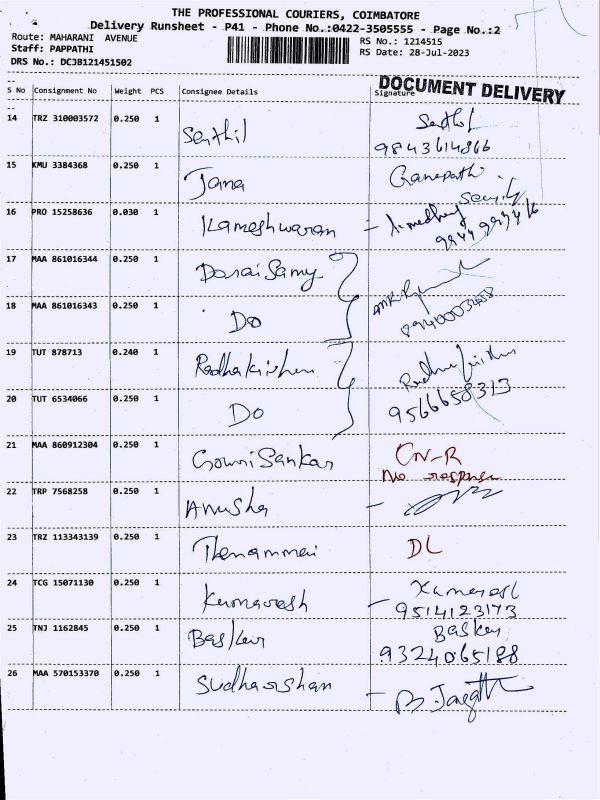 THE PROFESSIONAL COURIERS, COIMBATORE
Delivery Runsheet - P41 - Phone No.:0422-3505555 - Page No.:2
Route: MAHARANI AVENUE
RS No.: 1214515
Staff: PAPPATHI
RS Date: 28-Jul-2023
DRS No.: DCJB121451502
DOCUMENT DELIVERY
S No Consignment No Weight PCS Consignee Details Signature
14 TRZ 310003572 0.250 1 Senthil
9843614866
15 KMU 3384368 0.250 1 Jana Ganapathi
16 PRO 15258636 0.030 1 Kameshwaran -
17 MAA 861016344 0.250 1 DoraiSamy
18 MAA 861016343 0.250 1 Do
19 TUT 878713 0.240 1 Radhakrishnan
20 TUT 6534066 0.250 1 Do 9566658313
21 MAA 860912304 0.250 1 GowriSankar CN-R
No response
22 TRP 7568258 0.250 1 Anusha -
23 TRZ 113343139 0.250 1 Thenammai DL
24 TCG 15071130 0.250 1 Kumaresh - Kumaresh
9514123173
25 TNJ 1162845 0.250 1 Basker Basker
9324065188
26 MAA 570153370 0.250 1 Sudharshan -